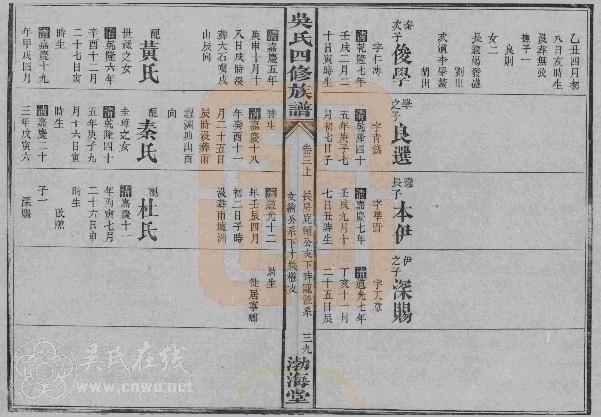 乙丑四月初
八日亥時生
歿葬無攷
撫子一
良則
女二
長適楊發盛
劉出
次適李學
胡出
秦次子 俊學
字仁溥
清乾隆七年
壬戌二月二
十日寅時生
學之子 良選
字青錢
清乾隆四十
五年庚子七
月初七日子
選長子 本伊
字華爵
清嘉慶七年
壬戌九月十
七日丑時生
伊之子 深賜
字天章
清道光七年
丁亥十一月
二十五日辰
吳氏四修族譜
卷三上
長房庭 公支下時寵派系
文 公系下才 權支
三九
渤海堂
清嘉慶五年
庚申十月十
八日戌時歿
葬大石嘴戌
山辰向
配 黃氏
世祿之女
清乾隆六年
辛酉十二月
二十七日亥
時生
清嘉慶十九
年甲戌四月
時生
清嘉慶十八
年癸酉十一
月二十五日
辰時歿葬甫
壇洲地山酉
向
配 秦氏
圭璋之女
清乾隆四十
五年庚子九
月十六日寅
時生
清嘉慶二十
三年戊寅六
清道光十二
年壬辰四月
初二日子時
歿葬甫壇洲
配 杜氏
清嘉慶十一
年丙寅七月
二十六日申
時生
子一
深賜
時生
徙居寧鄉
吴氏在线
www.cnwu.net